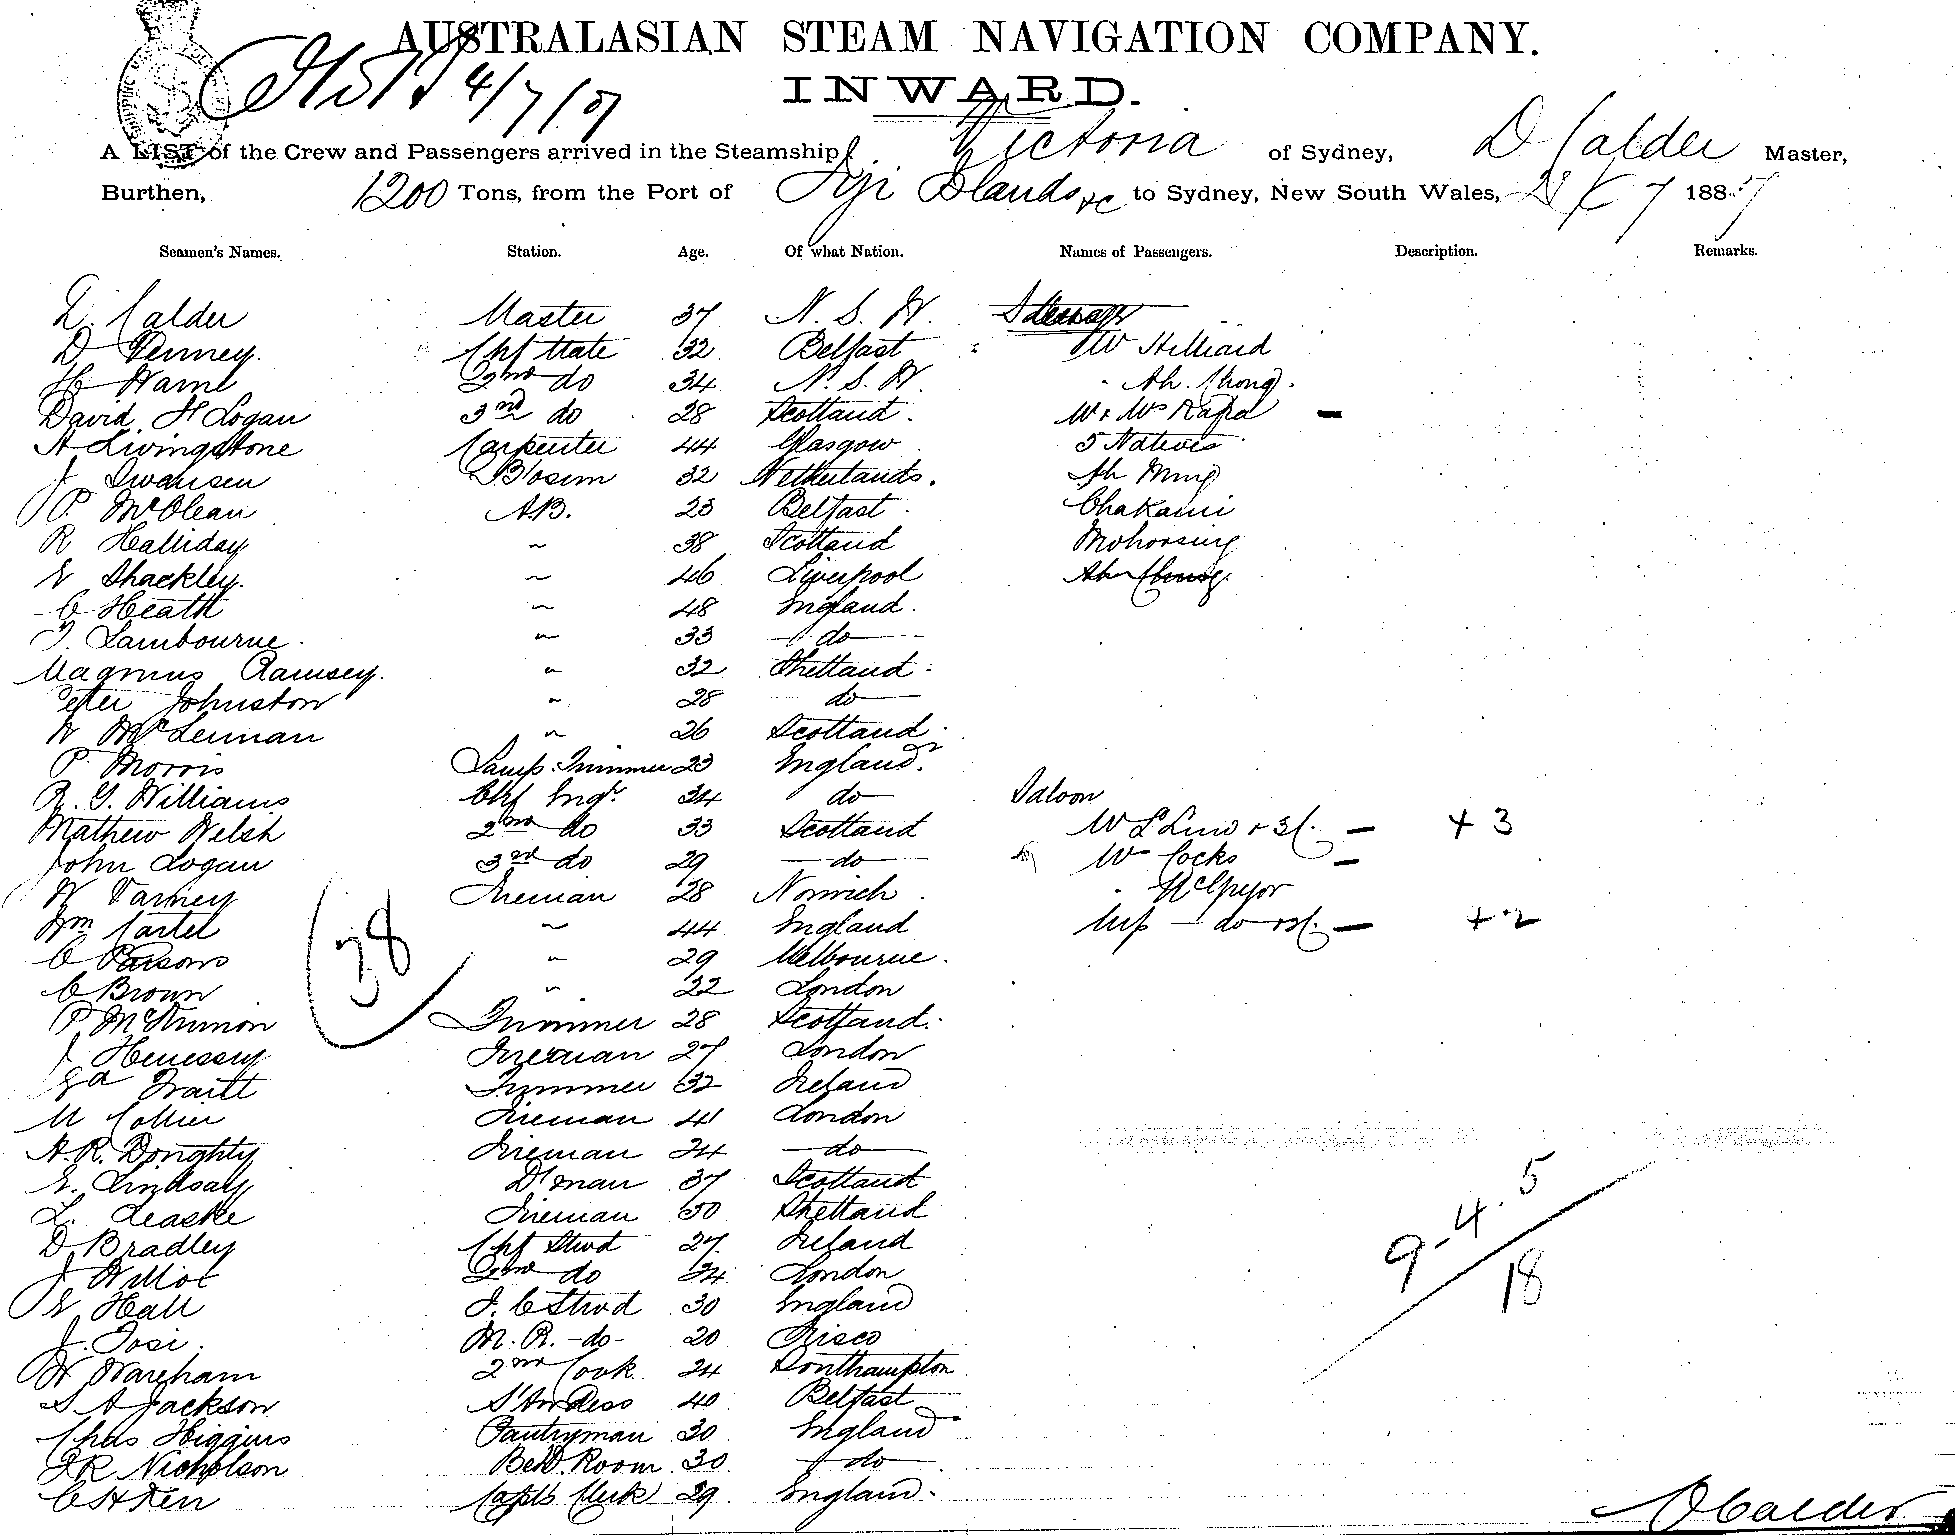 AUSTRALASIAN STEAM NAVIGATION COMPANY.
INWARD.
4/7/87
A LIST of the Crew and Passengers arrived in the Steamship Victoria of Sydney, D Calder Master,
Burthen, 1200 Tons, from the Port of Fiji Islands &c to Sydney, New South Wales, 7 1887
Seamen's Names. Station. Age. Of what Nation. Names of Passengers. Description. Remarks.
D. Calder Master 37 N. S. W. Steerage
D. Penney. Chf Mate 32 Belfast Mr Hilliard
H 2nd do 34 N. S. W. Ah. Chong.
David. H Logan 3rd do 28 Scotland. Mr & Mrs
A Livingstone Carpenter 44 Glasgow 5 Natives
J Swansen Bosun 32 Netherlands. Ah Ming
P McClean A.B. 23 Belfast.
R Halliday " 38 Scotland
Shackley. " 46 Liverpool
C Heath " 48 England.
T. Lambourne. " 33 do
Magnus Ramsey. " 32 Shetland
Peter Johnston " 28 do
McLennan " 26 Scotland
P Morris Lamp Trimmer 23 England.
R. G. Williams Chf Engr. 34 do Saloon
Mathew Welsh 2nd do 33 Scotland + 3
John Logan 3rd do 29 do Mr Cocks
W Varney Fireman 28 Norwich McGregor
Wm Carter " 44 England Miss do + 2
C Parsons " 29 Melbourne.
38
C Brown " 22 London
P. McKinnon Trimmer 28 Scotland.
J Henessey Fireman 27 London
Trimmer 32 Ireland
M Collier Fireman 41 London
A. R. Doughty Fireman 24 do
Lindsay D'man 37 Scotland
L. Leaske Fireman 30 Shetland
D Bradley Chf Stwd 27 Ireland
J 2nd do 24 London
Hall F. C Stwd 30 England
J. Tosi. M. R. do 20 Frisco
W Wareham 2nd Cook 24 Southampton
S A Jackson S'Andess 40 Belfast
Chas Higgins Pantryman 30 England
Nicholson Bed. Room 30 do
C H Ken Capt's Clerk 29 England.
9 - 4 . 5
18
D Calder